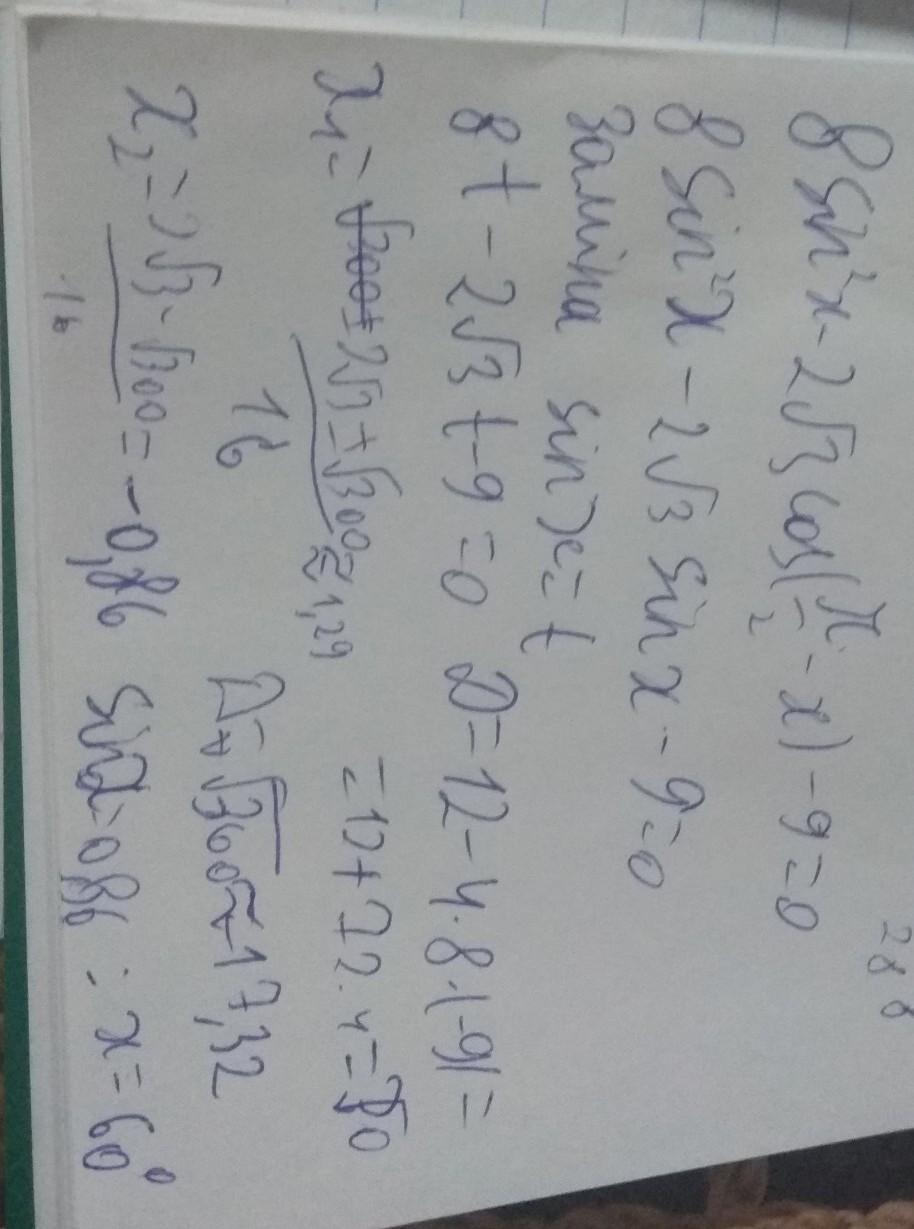 288
8 sin²x - 2√3 cos(π/2 - x) - 9 = 0
8 sin²x - 2√3 sin x - 9 = 0
заміна sin x = t
8t - 2√3 t - 9 = 0 D = 12 - 4·8·(-9) =
= 12 + 72·4 = 300
x₁ = 2√3 ± √300 / 16 ≈ 1,29
√300 ≈ 17,32
x₂ = 2√3 - √300 / 16 = -0,86 x = 60°